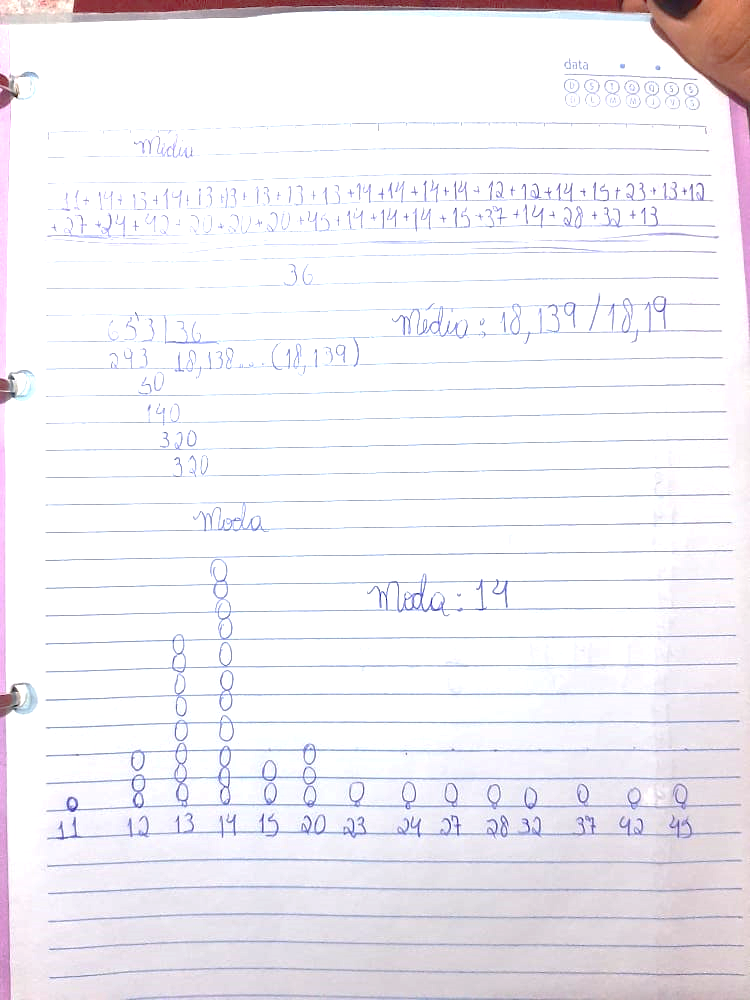 data
D S T Q Q S S
D L M M J V S
Média
11+14+13+14+13+13+13+13+13+14+14+14+14+12+12+14+15+23+13+12
+27+24+42+20+20+20+45+14+14+14+15+37+14+28+32+13
36
653 36 Média: 18,139/18,14
293 18,138... (18,139)
50
140
320
320
Moda
Moda: 14
11 12 13 14 15 20 23 24 27 28 32 37 42 45